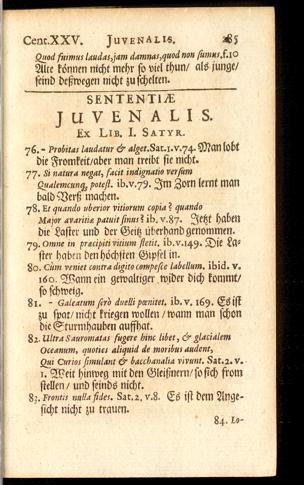 Cent.XXV. JUVENALIS. 285
Quod fuimus laudas, jam damnas, quod non sumus. f.10
Alte können nicht mehr so viel thun/ als junge/
seind deßwegen nicht zu schelten.
SENTENTIÆ
JUVENALIS.
EX LIB. I. SATYR.
76. - Probitas laudatur & alget. Sat.1.v.74. Man lobt
die Fromkeit/ aber man treibt sie nicht.
77. Si natura negat, facit indignatio versum
Qualemcunq, potest. ib.v.79. Im Zorn lernt man
bald Verß machen.
78. Et quando uberior vitiorum copia? quando
Major avaritia patuit sinus? ib. v.87. Jetzt haben
die Laster und der Geitz überhand genommen.
79. Omne in præcipiti vitium stetit. ib.v.149. Die La-
ster haben den höchsten Gipfel in.
80. Cùm veniet contra digito compesce labellum. ibid. v.
160. Wann ein gewaltiger wider dich kommt/
so schweig.
81. - Galeatum serò duelli pœnitet. ib. v. 169. Es ist
zu spat/ nicht kriegen wollen/ wann man schon
die Sturmhauben auffhat.
82. Ultra Sauromatas fugere hinc libet, & glacialem
Oceanum, quoties aliquid de moribus audent,
Qui Curios simulant & bacchanalia vivunt. Sat.2.v.
1. Weit hinweg mit den Gleißnern/ so sich from
stellen/ und seinds nicht.
83. Frontis nulla fides. Sat.2, v.8. Es ist dem Ange-
sicht nicht zu trauen.
84. Lo-